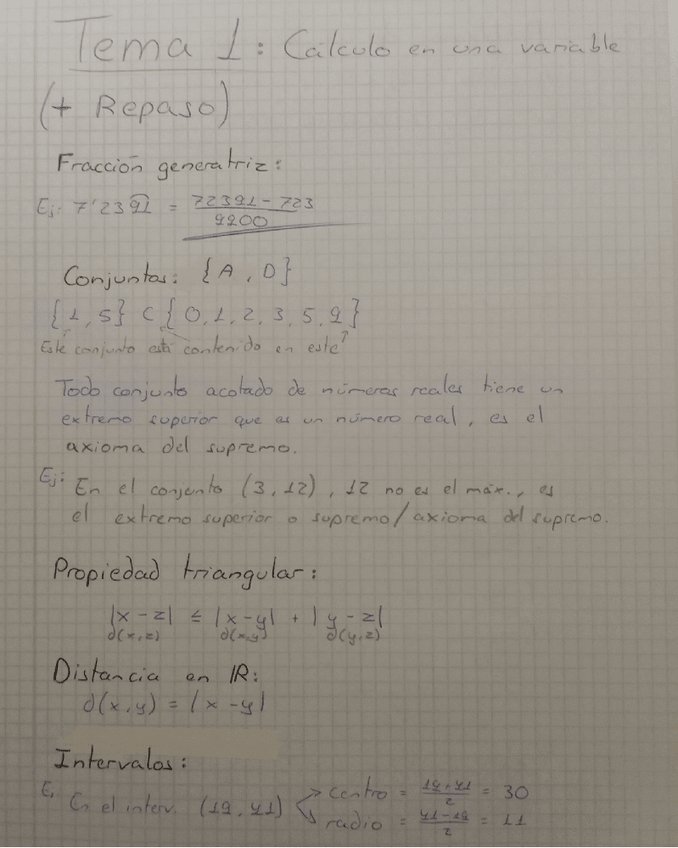 Tema 1: Cálculo en una variable
(+ Repaso)
Fracción generatriz:
Ej: 7'2391 = 72391 - 723 / 9900
Conjuntos: {A, D}
{1, 5} C {0, 1, 2, 3, 5, 9}
Este conjunto está contenido en este
Todo conjunto acotado de números reales tiene un
extremo superior que es un número real, es el
axioma del supremo.
Ej: En el conjunto (3, 12), 12 no es el máx., es
el extremo superior o supremo/axioma del supremo.
Propiedad triangular:
|x - z| ≤ |x - y| + |y - z|
d(x,z) d(x,y) d(y,z)
Distancia en IR:
d(x,y) = |x - y|
Intervalos:
E. En el interv. (19, 41) centro = 19+41 / 2 = 30
radio = 41-19 / 2 = 11